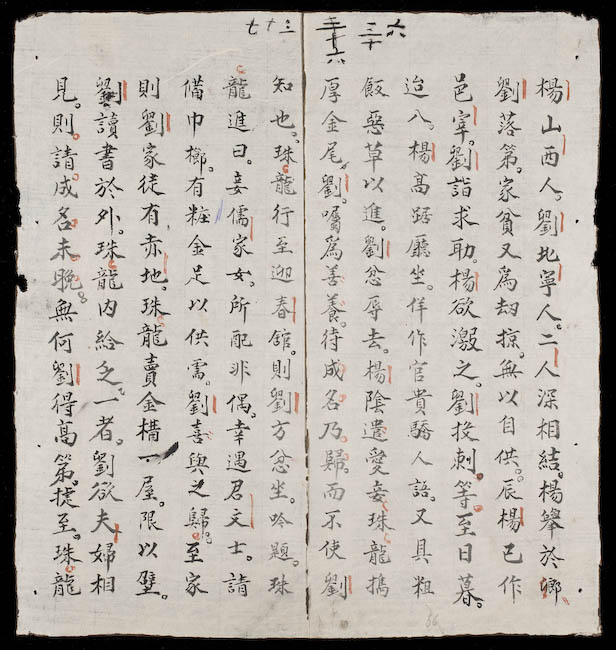 三十六
楊山西人。劉北寧人。二人深相結。楊舉於鄉
劉落第。家貧又爲劫掠。無以自供。辰楊已作
邑宰。劉詣求助。楊欲激之。劉投刺。等至日暮。
迨入。楊高踞廳坐。佯作官貴驕人語。又具粗
飯惡草以進。劉忿辱去。楊陰遣愛妾珠龍擕
厚金尾。劉。囑爲善養。待成名乃歸。而不使劉
三十七
知也。珠龍行至迎春舘。則劉方忿坐。吟題。珠
龍進曰。妾儒家女。所配非偶。幸遇君文士。請
備巾櫛。有粧金足以供需。劉喜與之歸。至家
則劉家徒有赤地。珠龍賣金構一屋。限以壁。
劉讀書於外。珠龍內給乏一者。劉欲夫婦相
見。則請。成名未晚。無何劉得高第。捷至。珠龍